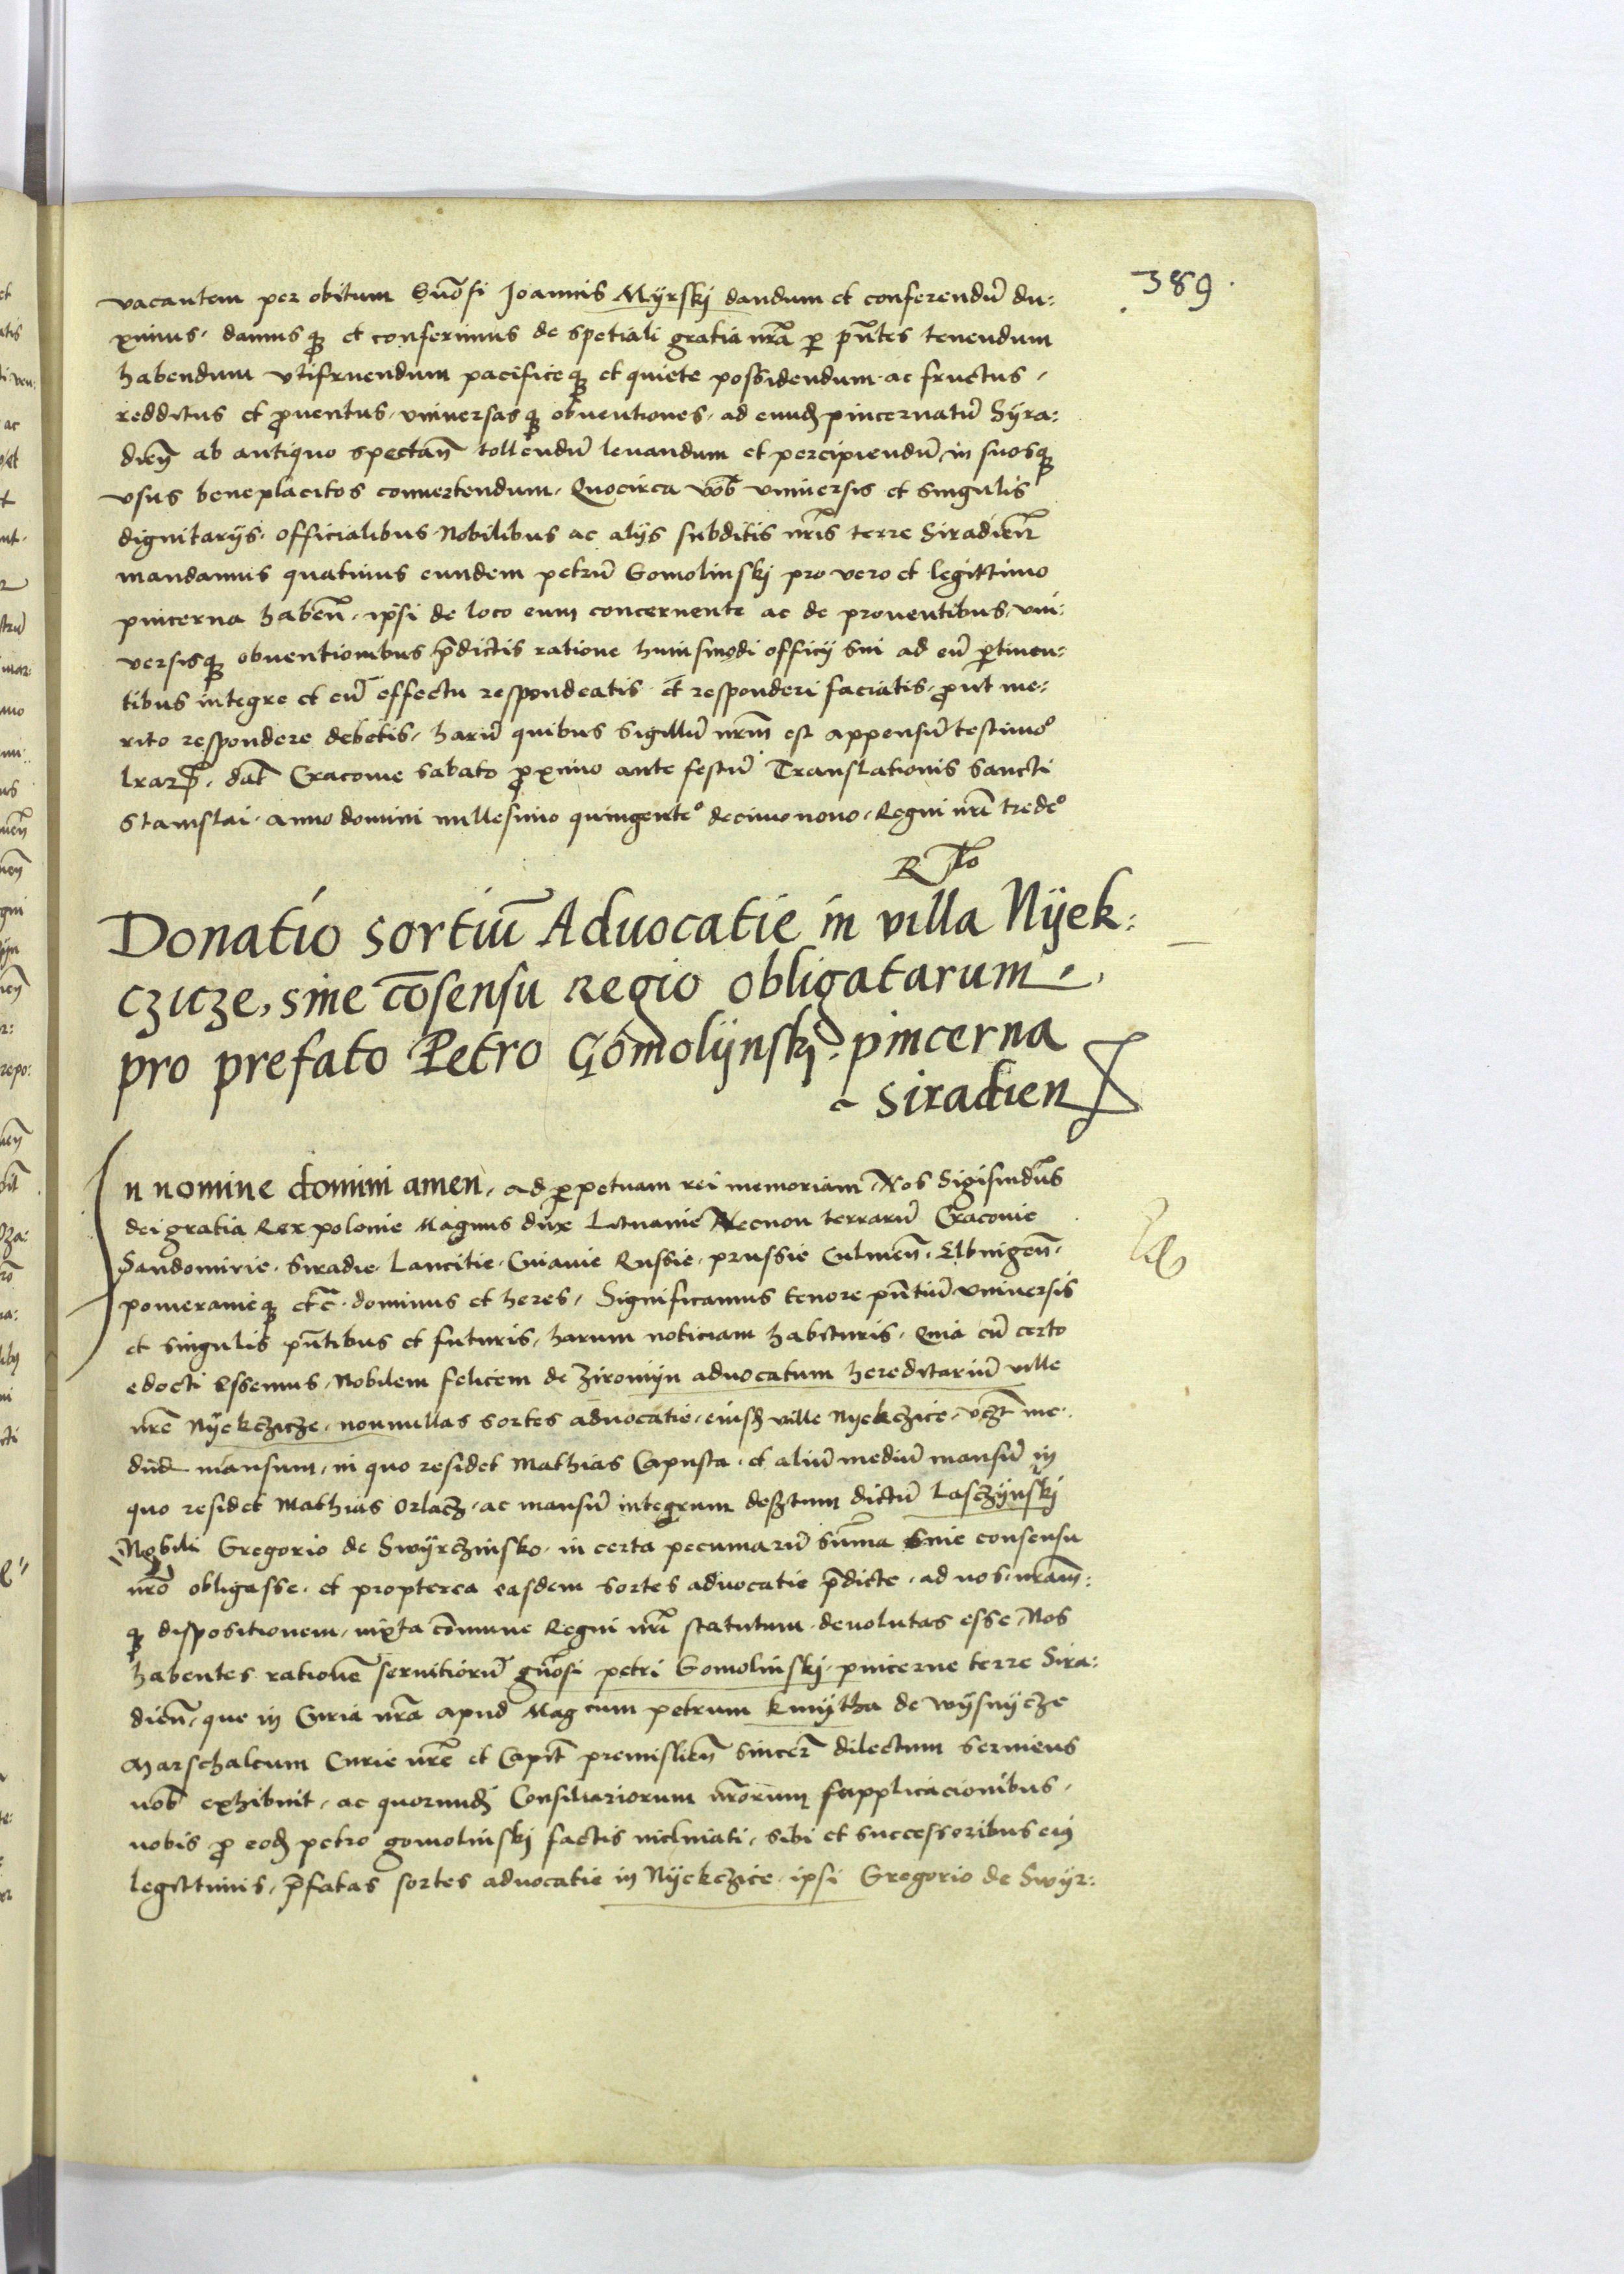 389.
vacantem per obitum Gnõsi Joannis Myrskj dandum et conferendũ du:
ximus. damusqꝫ et conferimus de spetiali gratia nrã ꝑ pñtes tenendum
habendum vtifruendum pacificeqꝫ et quiete possidendum. ac fructus,
redditus et ꝓuentus, vniuersasqꝫ obuentiones, ad eund̃ pincernatũ Syra:
dieñ ab antiquo spectañ tollendũ leuandum et percipiendũ, in suosqꝫ
vsus beneplacitos conuertendum. Quocirca vob̃ vniuersis et singulis
dignitarijs. officialibus. Nobilibus ac alijs subditis nr̃is terre Siradieñ
mandamus quatinus eundem petrũ Gomolinskj pro vero et legittimo
pincerna habeñ. ipsi de loco eum concernente ac de prouentibus, vni:
versisqꝫ obuentionibus p̃dictis ratione huiusmodi officij sui ad eũ ꝑtinen:
tibus integre et cũ effectu respondeatis et responderi faciatis, ꝓut me:
rito respondere debetis, harũ quibus Sigillũ nrm̃ est appensũ testimoº
lraꝝ. dat̃ Cracouie sabato ꝓximo ante festũ Translationis Sancti
Stanislai. anno domini millesimo quingenteº decimonono, Regni nrĩ tredeº
R To
Donatio sortiũ Aduocatie in villa Nyek:
czicze, sine cõsensu Regio obligatarum,
pro prefato Petro Gomolijnskj. pincerna
Siradien
In nomine domini amen, ad ꝑpetuam rei memoriam, Nos Sigismdũs
dei gratia Rex polonie Magnus dux Lituanie Necnon terrarũ Cracouie
Sandomirie. Siradie. Lancitie. Cuiauie Russie. prussie Culmeñ. Elbingeñ.
pomeranieqꝫ etc̃. dominus et heres, Significamus tenore pñtiũ vniuersis
et singulis pñtibus et futuris, harum noticiam habituris. Quia cũ certo
edocti essemus, Nobilem felicem de Ziromijn aduocatum hereditariũ ville
nrẽ Nyekczicze. nonnullas sortes aduocatie, eiusd̃ ville Nyekczice, vcꝫt me:
diũ mansum, in quo residet Mathias Capusta. et aliũ mediũ mansũ in
quo residet Mathias Orlacz. ac mansũ integrum desertum dictũ Lasczijnskj
Nobili Gregorio de Swyrczinsko. in certa pecuniarũ sũma sine consensu
nrõ obligasse. et propterea easdem sortes aduocatie p̃dicte. ad nos. nram̃:
qꝫ dispositionem, iuxta cõmune Regni nrĩ statutum. deuolutas esse, Nos
habentes rationẽ seruitiorũ gñosi petri Gomolinskj. pincerne terre Sira:
dieñ, que in Curia nrã apud Magcum petrum kmytha de wysnycze
Marschalcum Curie nrẽ et Capit̃ premislieñ sincer̃ dilectum seruiens
nob̃ exhibuit. ac quorund̃ Consiliariorum nrõrum supplicacionibus.
nobis ꝓ eod̃ petro gomolinskj factis inclinati, sibi et successoribus eiꝰ
legittimis, p̃fatas sortes aduocatie in Nyekczice, ipsi Gregorio de Swyr: